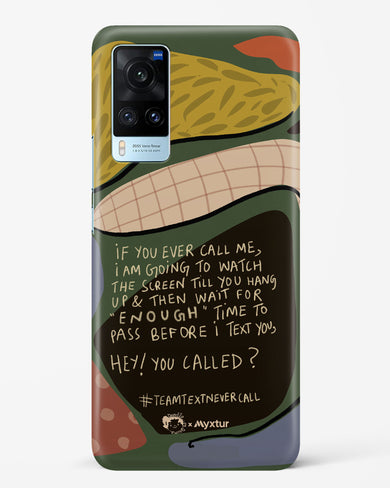 iF YOU EVER CALL ME,
i AM GOING TO WATCH
THE SCREEN TILL YOU HANG
UP & THEN WAIT FOR
"ENOUGH" TIME TO
PASS BEFORE i TEXT YOU,
HEY! YOU CALLED?
#TEAMTEXTNEVERCALL
x Myxtur